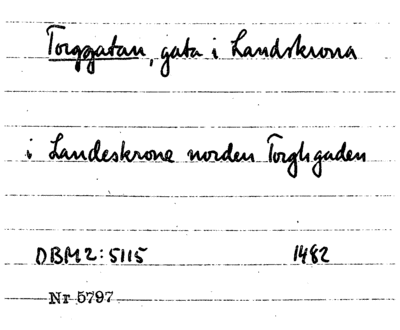 Torggatan, gata i Landskrona
i Landeskrone norden Torghgaden
DBM2:5115 1482
Nr 5797